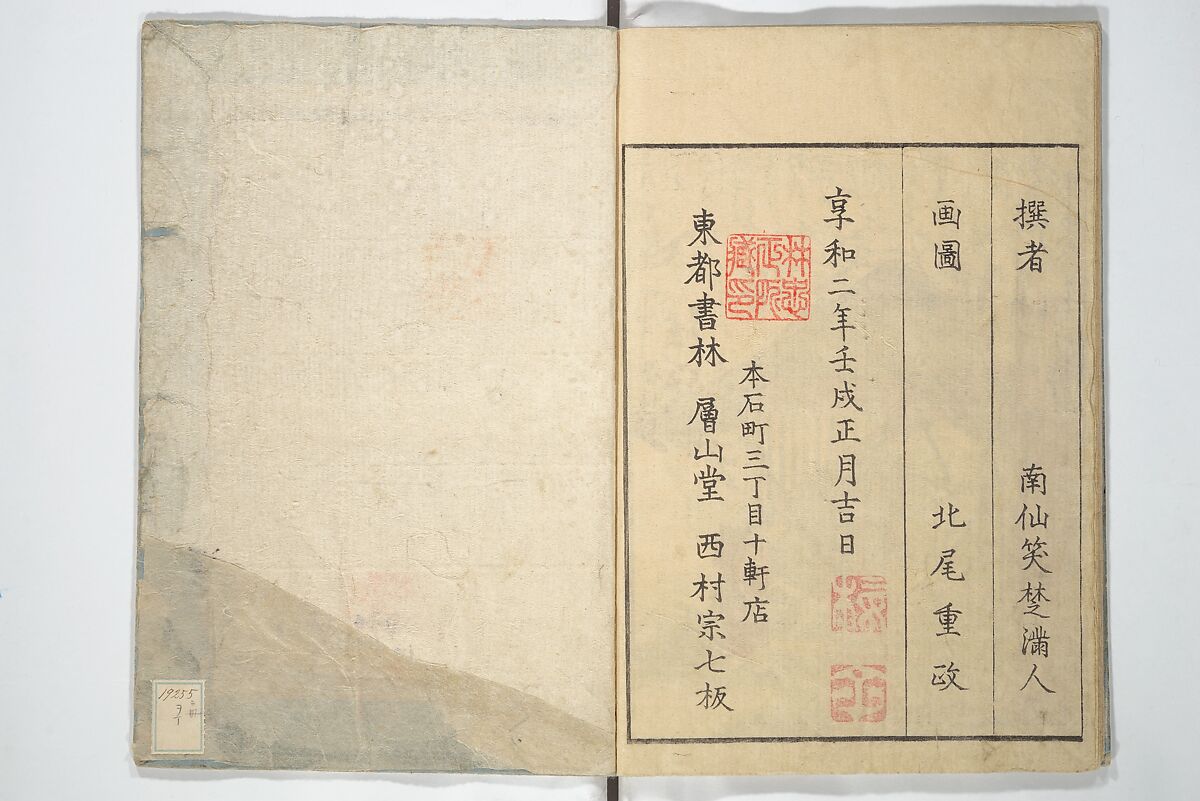 撰者　南仙笑楚滿人
画圖　北尾重政
享和二年壬戌正月吉日
本石町三丁目十軒店
東都書林　層山堂　西村宗七板
19255